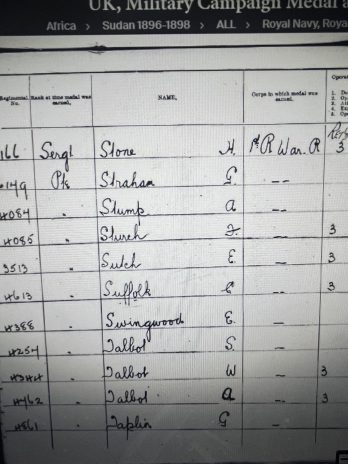 UK, Military Campaign Medal a
Africa > Sudan 1896-1898 > ALL > Royal Navy, Roya
Regimental No. Rank at time medal was earned. NAME. Corps in which medal was earned. Operat
166 Sergt Stone H. 1st R War. R 3
149 Pte Strahan G. - -
4084 " Stump A - -
4085 " Sturch 3
3513 " Sutch E. - 3
4613 " Suffolk - 3
4388 " Swingwood E. -
4254 " Talbot S. -
" Talbot W - 3
4462 " Talbot A - 3
" Taplin G -